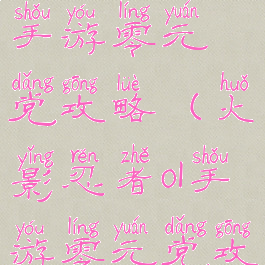 shǒu yóu líng yuán
手游零元
dǎng gōng lüè huǒ
党攻略（火
yǐng rěn zhě shǒu
影忍者ol手
yóu líng yuán dǎng gōng
游零元党攻